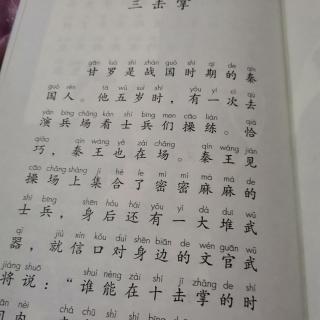 三击掌
gān luó shì zhàn guó shí qī de qín
甘罗是战国时期的秦
guó rén tā wǔ suì shí yǒu yí cì qù
国人。他五岁时，有一次去
yǎn bīng chǎng kàn shì bīng men cāo liàn qià
演兵场看士兵们操练。恰
qiǎo qín wáng yě zài chǎng qín wáng jiàn
巧，秦王也在场。秦王见
cāo chǎng shàng jí hé le mì mì má má de
操场上集合了密密麻麻的
shì bīng shēn hòu hái yǒu yí dà duī wǔ
士兵，身后还有一大堆武
qì jiù xìn kǒu duì shēn biān de wén guān wǔ
器，就信口对身边的文官武
jiàng shuō shuí néng zài shí jī zhǎng de shí
将说：“谁能在十击掌的时